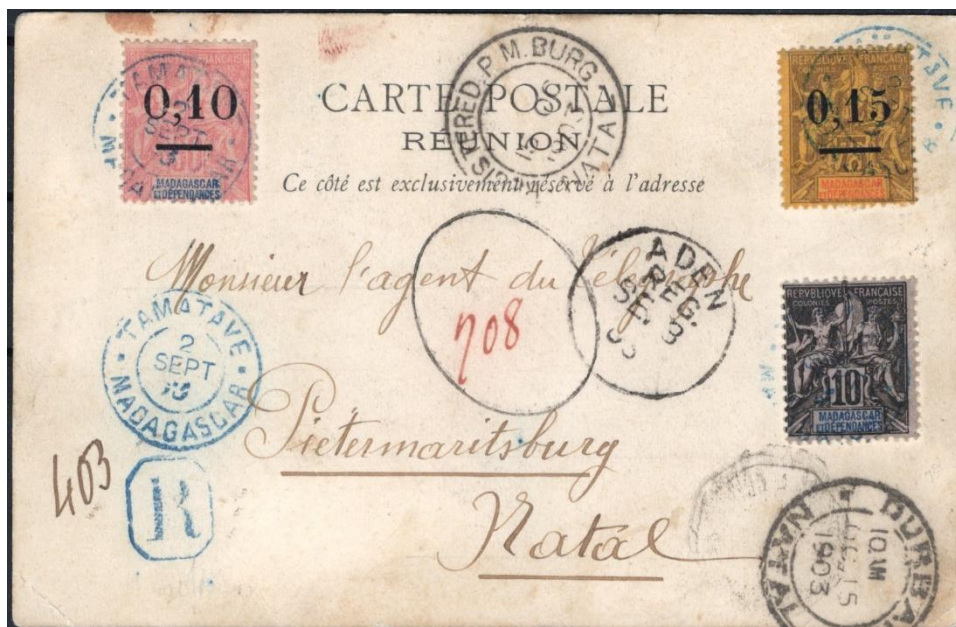 0,10
MADAGASCAR
ET DÉPENDANCES
CARTE POSTALE
RÉUNION
Ce côté est exclusivement réservé à l'adresse
P.M.BURG
NATAL
RÉPUBLIQUE FRANÇAISE
0,15
MADAGASCAR
ET DÉPENDANCES
Monsieur l'agent du Télégraphe
708
ADEN
REG.
TAMATAVE
2
SEPT
MADAGASCAR
RÉPUBLIQUE FRANÇAISE
COLONIES POSTES
10
MADAGASCAR
ET DÉPENDANCES
Pietermaritsburg
403
R
Natal
DURBAN
10 AM
15
1903
NATAL